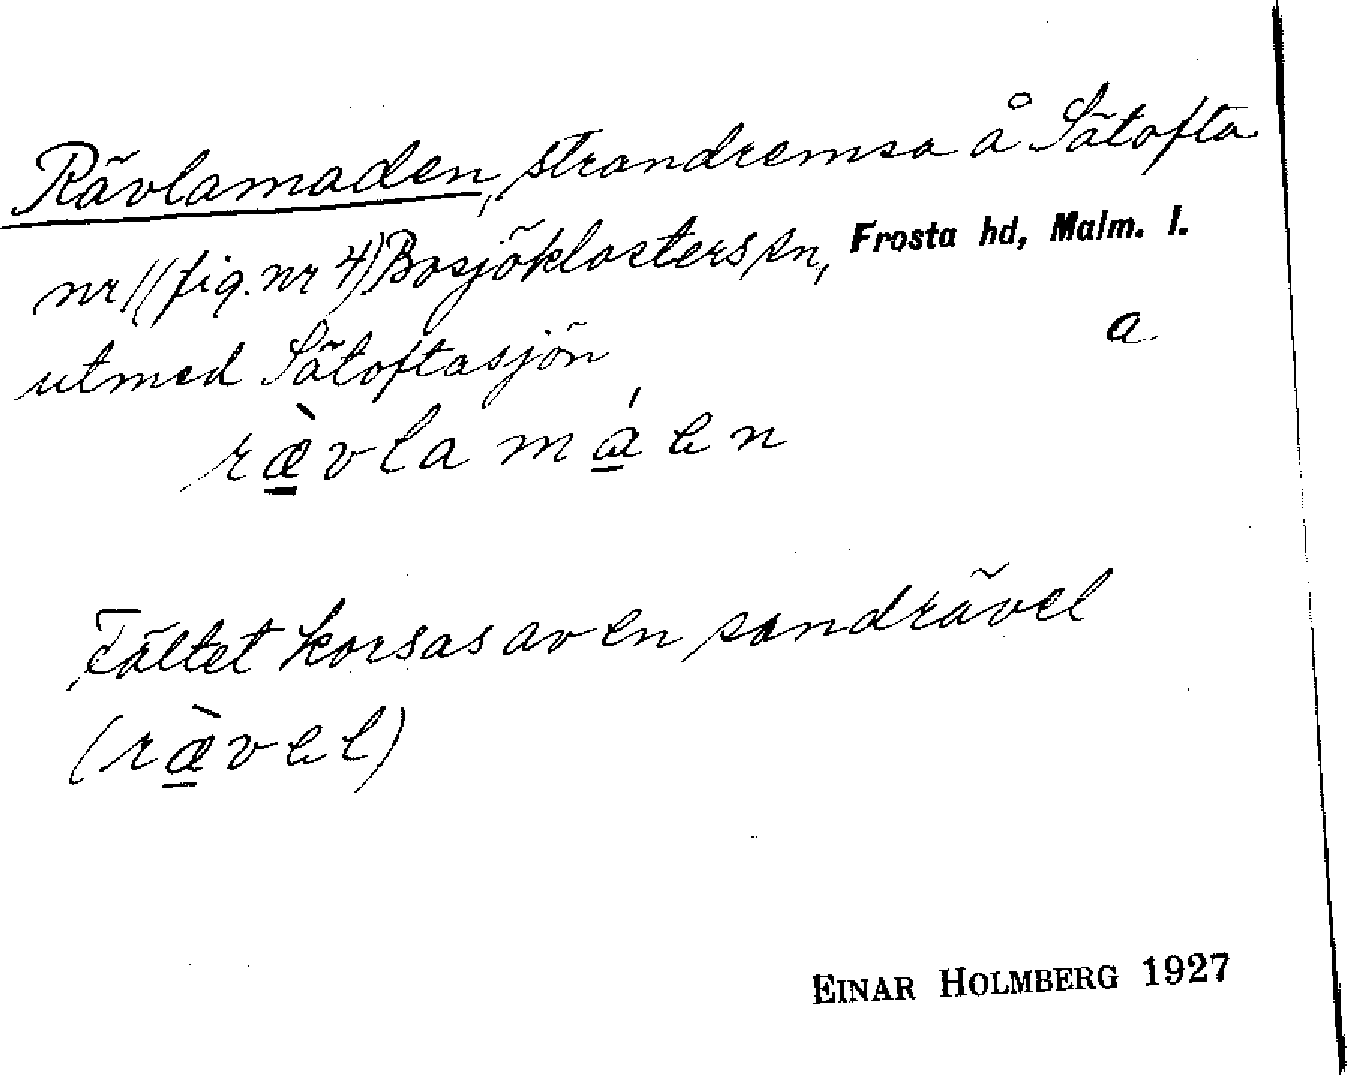 Rävlamaden, strandremsa å Sätofta
nr 1 (fig. nr 4) Bosjöklosters sn, Frosta hd, Malm. l.
utmed Sätoftasjön a
ræ̀vlamáen
Fältet korsas av en sandrävel
(ræ̀vel)
EINAR HOLMBERG 1927